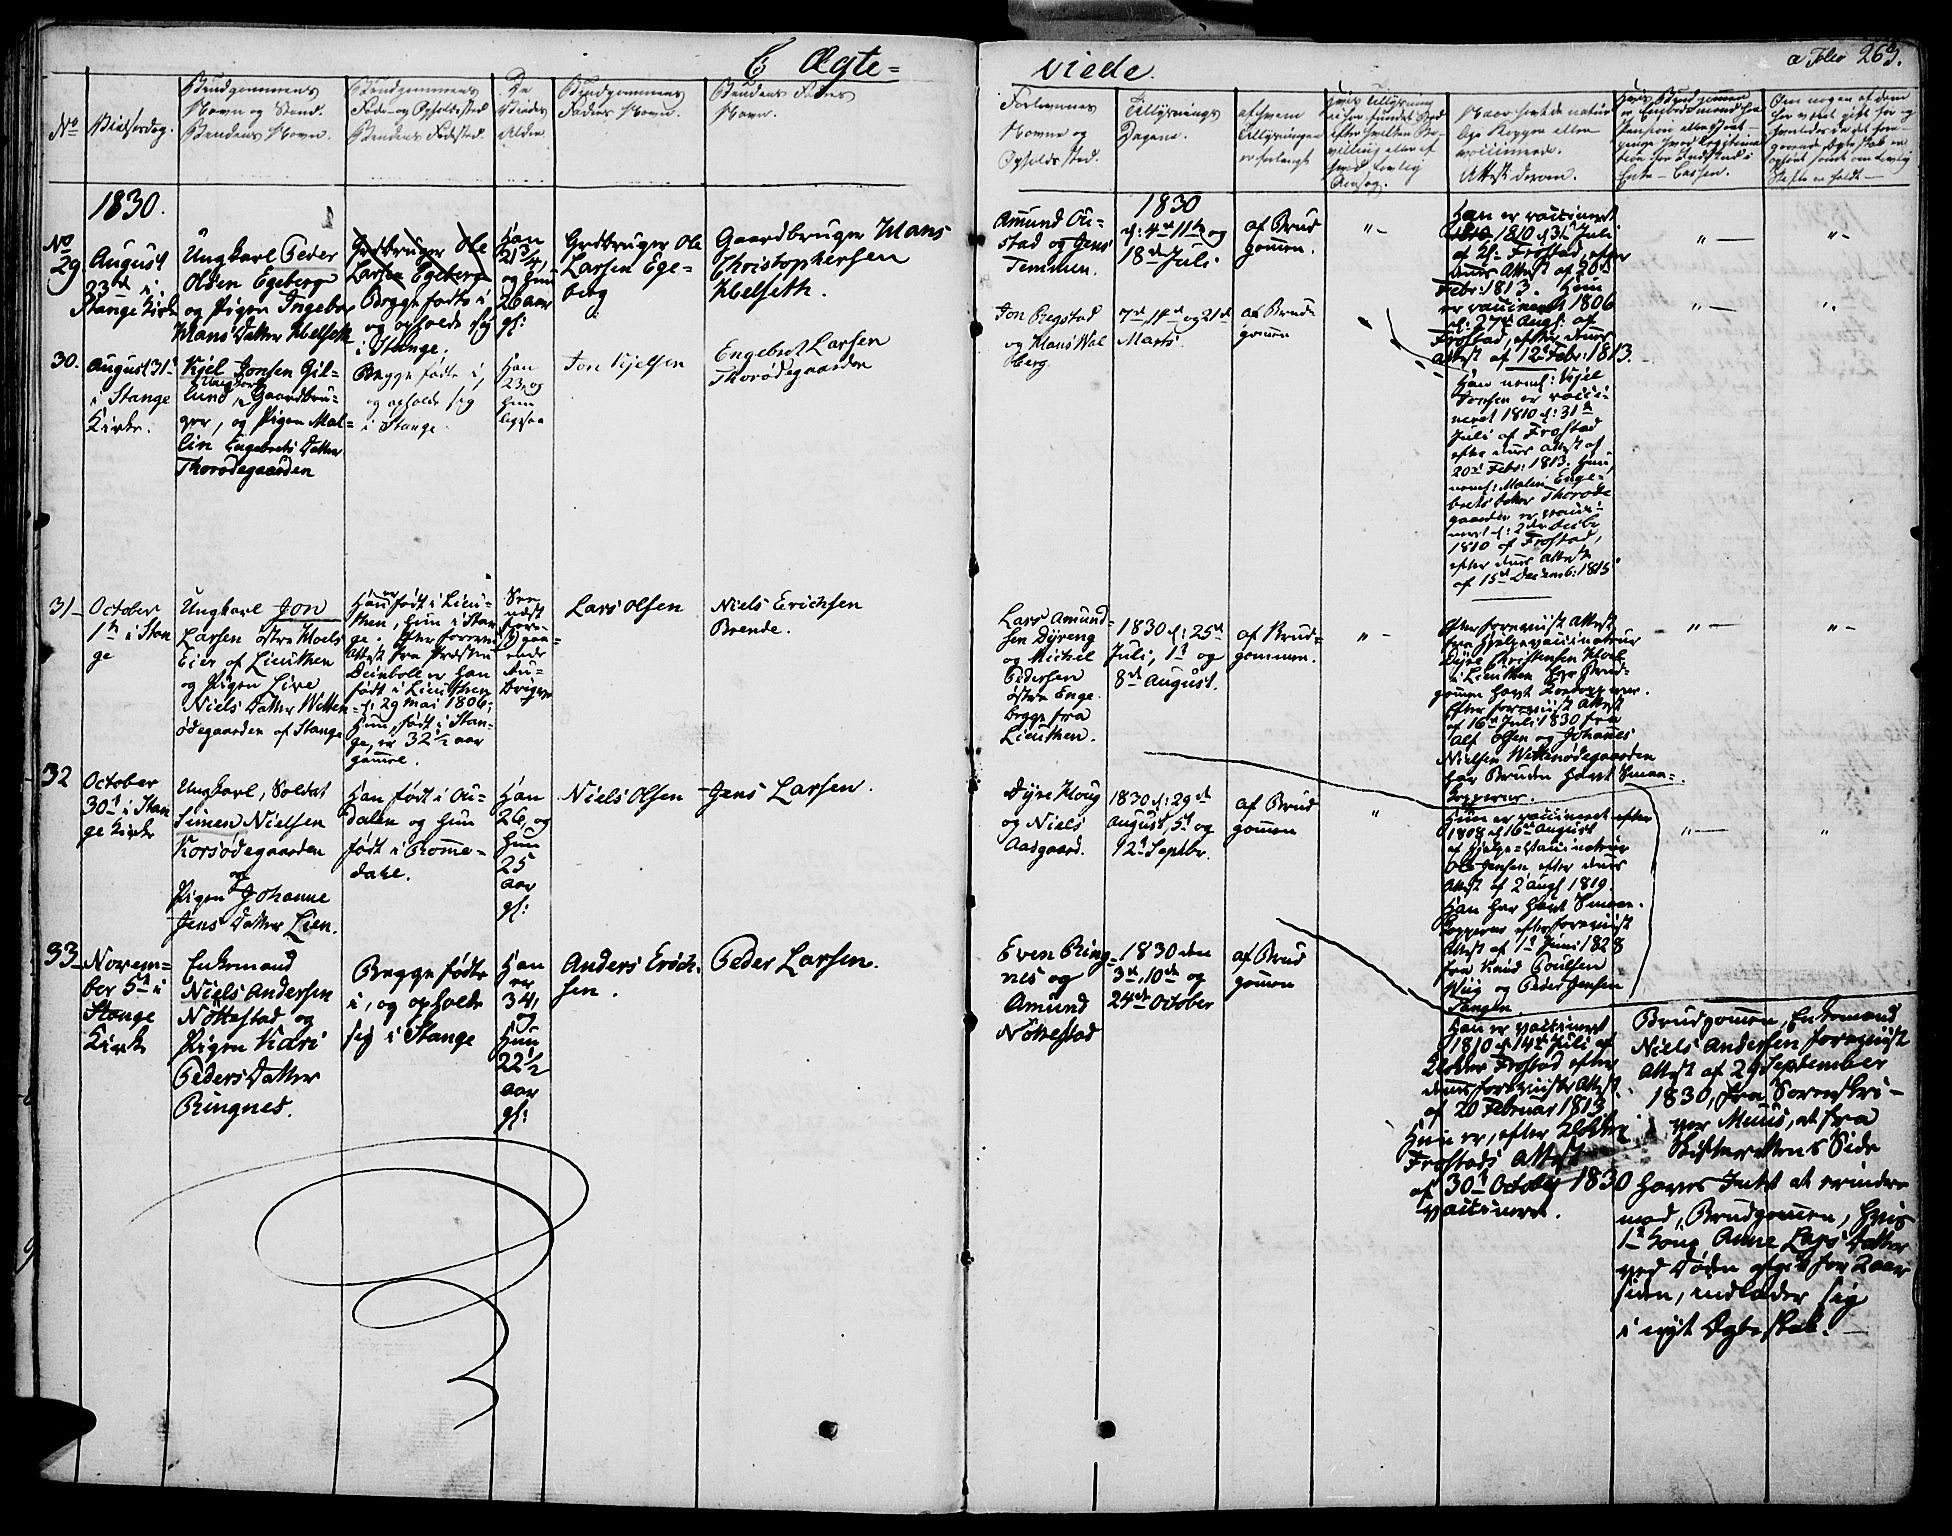 C Ægte=
viede.
a Folio 263.
No
Vielsesdag.
Brudgommens
Navn og Stand.
Brudens Navn.
Brudgommens
Føde- og Opholdssted
Brudens Fødested.
De
Viedes
Alder
Brudgommens
Faders Navn.
Brudens Faders
Navn.
Forlovernes
Navne og
Opholdssted.
Tillysnings
Dagene.
af hvem
Tillysningen
er forlangt
1830.
No
29
August
23de i
Stange Kirke
Ungkarl Peder
Olsen Egeberg
og Pigen Ingebor
Hans Datter Helseth
Grdbruger Ole
Larsen Egeberg
Begge fødte i
og opholde sig
i Stange.
Han
21 3/4,
og hun
26 aar
gl:
Grdbruger Ole
Larsen Ege=
berg
Gaardbruger Hans
Christophersen
Helseth.
Amund Ou=
stad og Jens
Temmen.
1830
d: 4de 11te og
18de Juli
af Brud
gomen.
Han er vaccineret
1810 d 31te Juli
af Hr Frostad, efter
dens Attest af 20de
Febr: 1813. Hun
er vaccineret 1806
d: 27de Augs. af
Frostad, efter dens
Attest af 12 Febr: 1813.
30.
August 31te
i Stange
Kirke.
Kjel Jonsen Gil=
lund, Ungkarl, Gaardbru=
ger, og Pigen Mal=
lin Engebrets Datter
Thorødegaarden
Begge fødte i,
og opholde sig
i Stange.
Han
23, og
hun
ligesaa
Jon Kjelsen
Engebret Larsen
Thorødegaarden
Jon Regstad
og Hans Wal
berg
7de, 14de og 21de
Marts.
af Brud
gomen
Han neml: Kjel
Jonsen er vacci=
neret 1810 d: 31te
Juli af Frostad
efter dens Attest af
20de Febr: 1813. Hun,
neml: Malin Enge=
brets Datter Thorøde
gaarden er vacci=
neret d: 2den Octbr
1810 af Frostad,
efter dens Attest
af 15de Decemb: 1815
31
October
1te i Stan
ge
Ungkarl Jon
Larsen østre Hoels
Eier af Lieuthen
og Pigen Live
Niels Datter Wetten
ødegaarden af Stange
Han er født i Lieu=
then, hun i Stan
ge. Efter foreviist
Attest fra Præsten
Deinbole er han
født i Lieuthen
d: 29 Mai 1806;
hun, født i Stan=
ge, er 32 1/2 aar
gammel.
See
næst
fore=
gaa=
ende
Ru=
briqve
Lars Olsen
Niels Erichsen
Brende.
Lars Amund=
sen Dyreng
og Michel
Pedersen
østre Enge
begge fra
Lieuthen.
1830 d: 25de
Juli, 1te og
8de August.
af Brud=
gommen.
Efter foreviist Attest
fra Hjelpevaccinateur
Dyre Christensen Hoel
i Lieuthen har Brud=
gomen havt Kokopperne.
Efter foreviist Attest
af 16de Juli 1830 fra
Alf Olsen og Johannes
Nielsen Wettenødegaarden
har Bruden havt Smaa=
kopperne.
32
October
30te i Stan
ge Kirke
Ungkarl, Soldat
Simen Nielsen
Korsødegaarden
og
Pigen Johanne
Jens Datter Lien.
Han født i Ou=
dalen og hun
født i Rome=
dahl.
Han
26, og
hun
25
aar
gl:
Niels Olsen
Jens Larsen.
Dyre Houg
og Niels
Aasgaard.
1830 d: 29de
August, 5te og
12te Septbr.
af Brud
gomen
Hun er vaccineret efter
1808 d 16de August
af Hjelpe=Vaccinateur
Ole Jensen efter dens
Attest af 2 Augs 1819.
Han har havt Smaa=
kopperne efter foreviist
Attest af 1te Juni 1828
fra Knud Poulsen
Wiig og Peder Jensen
Tangen.
33
Novem=
ber 5te i
Stange
Kirke
Enkemand
Niels Andersen
Nøttestad og
Pigen Kari
Peders Datter
Ringnes.
Begge fødte
i, og opholde
sig i Stange
Han
er
34,
og
Hun
22 1/2
aar
gl:
Anders Erich=
sen.
Peder Larsen.
Even Ring=
nes og
Amund
Nøttestad
1830 den
3de, 10de og
24de October
af Brud
gomen
Han er vaccineret
1810 d 14de Juli af
Klokker Frostad efter
dens foreviiste Attest
af 20 Februar 1813
Hun er, efter Klokker
Frostads Attest
af 30te October 1830
vaccineret.
Brudgomen, Enkemand
Niels Andersen foreviist
Attest af 29 September
1830, fra Sorenskri=
ver Muus, at fra
Skifterettens Side
haves Intet at erindre
mod, Brudgomen, hvis
1te Kone, Anne Lars Datter
ved Døden afgik for 2 aar
siden, indlader sig
i nyt Ægteskab.